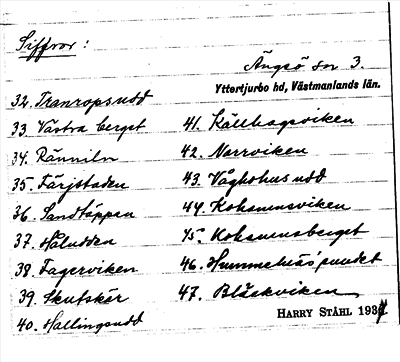 Siffror:
Ängsö sn 3.
Yttertjurbo hd, Västmanlands län.
32. Tranropsudd
33. Västra berget
34. Ränniln
35. Färjstaden
36. Sandtäppan
37. Håludden
38. Fagerviken
39. Skutskär
40. Hallingsudd
41. Källhagsviken
42. Norrviken
43. Våghohusudd
44. Kohamnsviken
45. Kohamnsberget
46.
47. Bläckviken
HARRY STÅHL 1934.